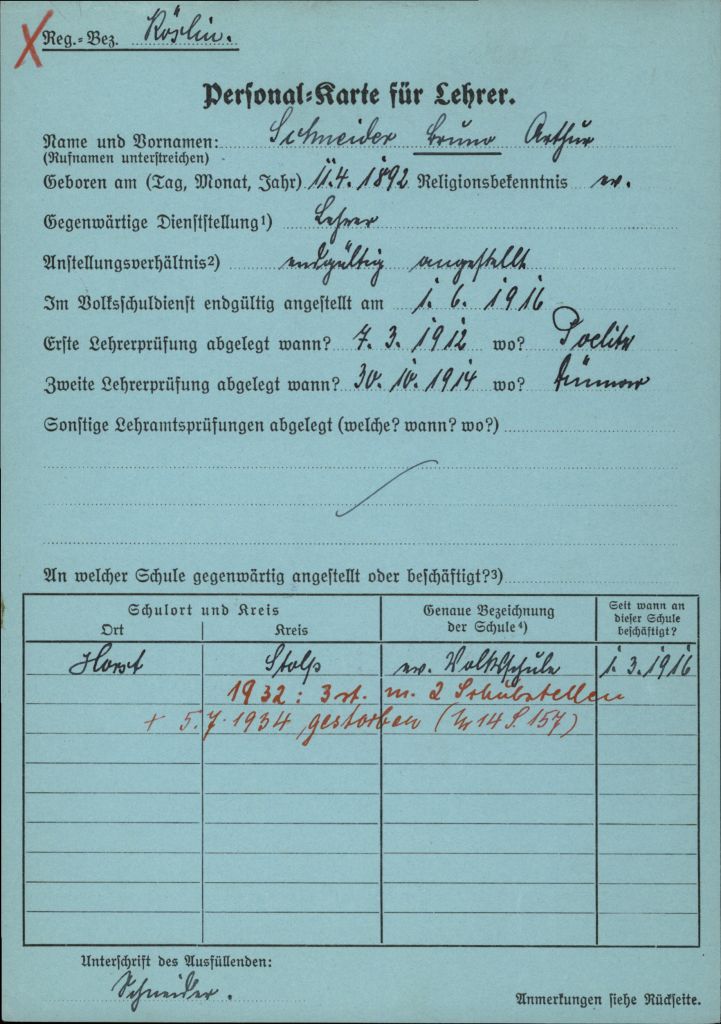 Reg.-Bez. Köslin.
Personal-Karte für Lehrer.
Name und Vornamen: Schneider Bruno Arthur
(Rufnamen unterstreichen)
Geboren am (Tag, Monat, Jahr) 11.4. 1892 Religionsbekenntnis ev.
Gegenwärtige Dienststellung¹) Lehrer
Anstellungsverhältnis²) endgültig angestellt
Im Volksschuldienst endgültig angestellt am 1. 6. 1916
Erste Lehrerprüfung abgelegt wann? 7. 3. 1912 wo? Poelitz
Zweite Lehrerprüfung abgelegt wann? 30. 10. 1914 wo?
Sonstige Lehramtsprüfungen abgelegt (welche? wann? wo?)
An welcher Schule gegenwärtig angestellt oder beschäftigt?³)
Schulort und Kreis
Ort Kreis
Genaue Bezeichnung der Schule⁴)
Seit wann an dieser Schule beschäftigt?
Horst Stolp ev. Volksschule 1. 3. 1916
1932: 3 st. m. 2 Schulstellen
+ 5.7.1934 gestorben (14 S. 157)
Unterschrift des Ausfüllenden:
Schneider.
Anmerkungen siehe Rückseite.